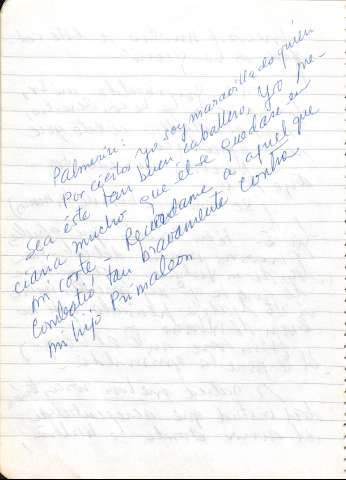 Palmerín:
Por cierto yo soy maravillado quién
sea éste tan buen caballero, yo pre-
ciaría mucho que él se quedare en
mi corte - Recuérdame a aquel que
combatió tan bravamente contra
mi hijo Primaleon